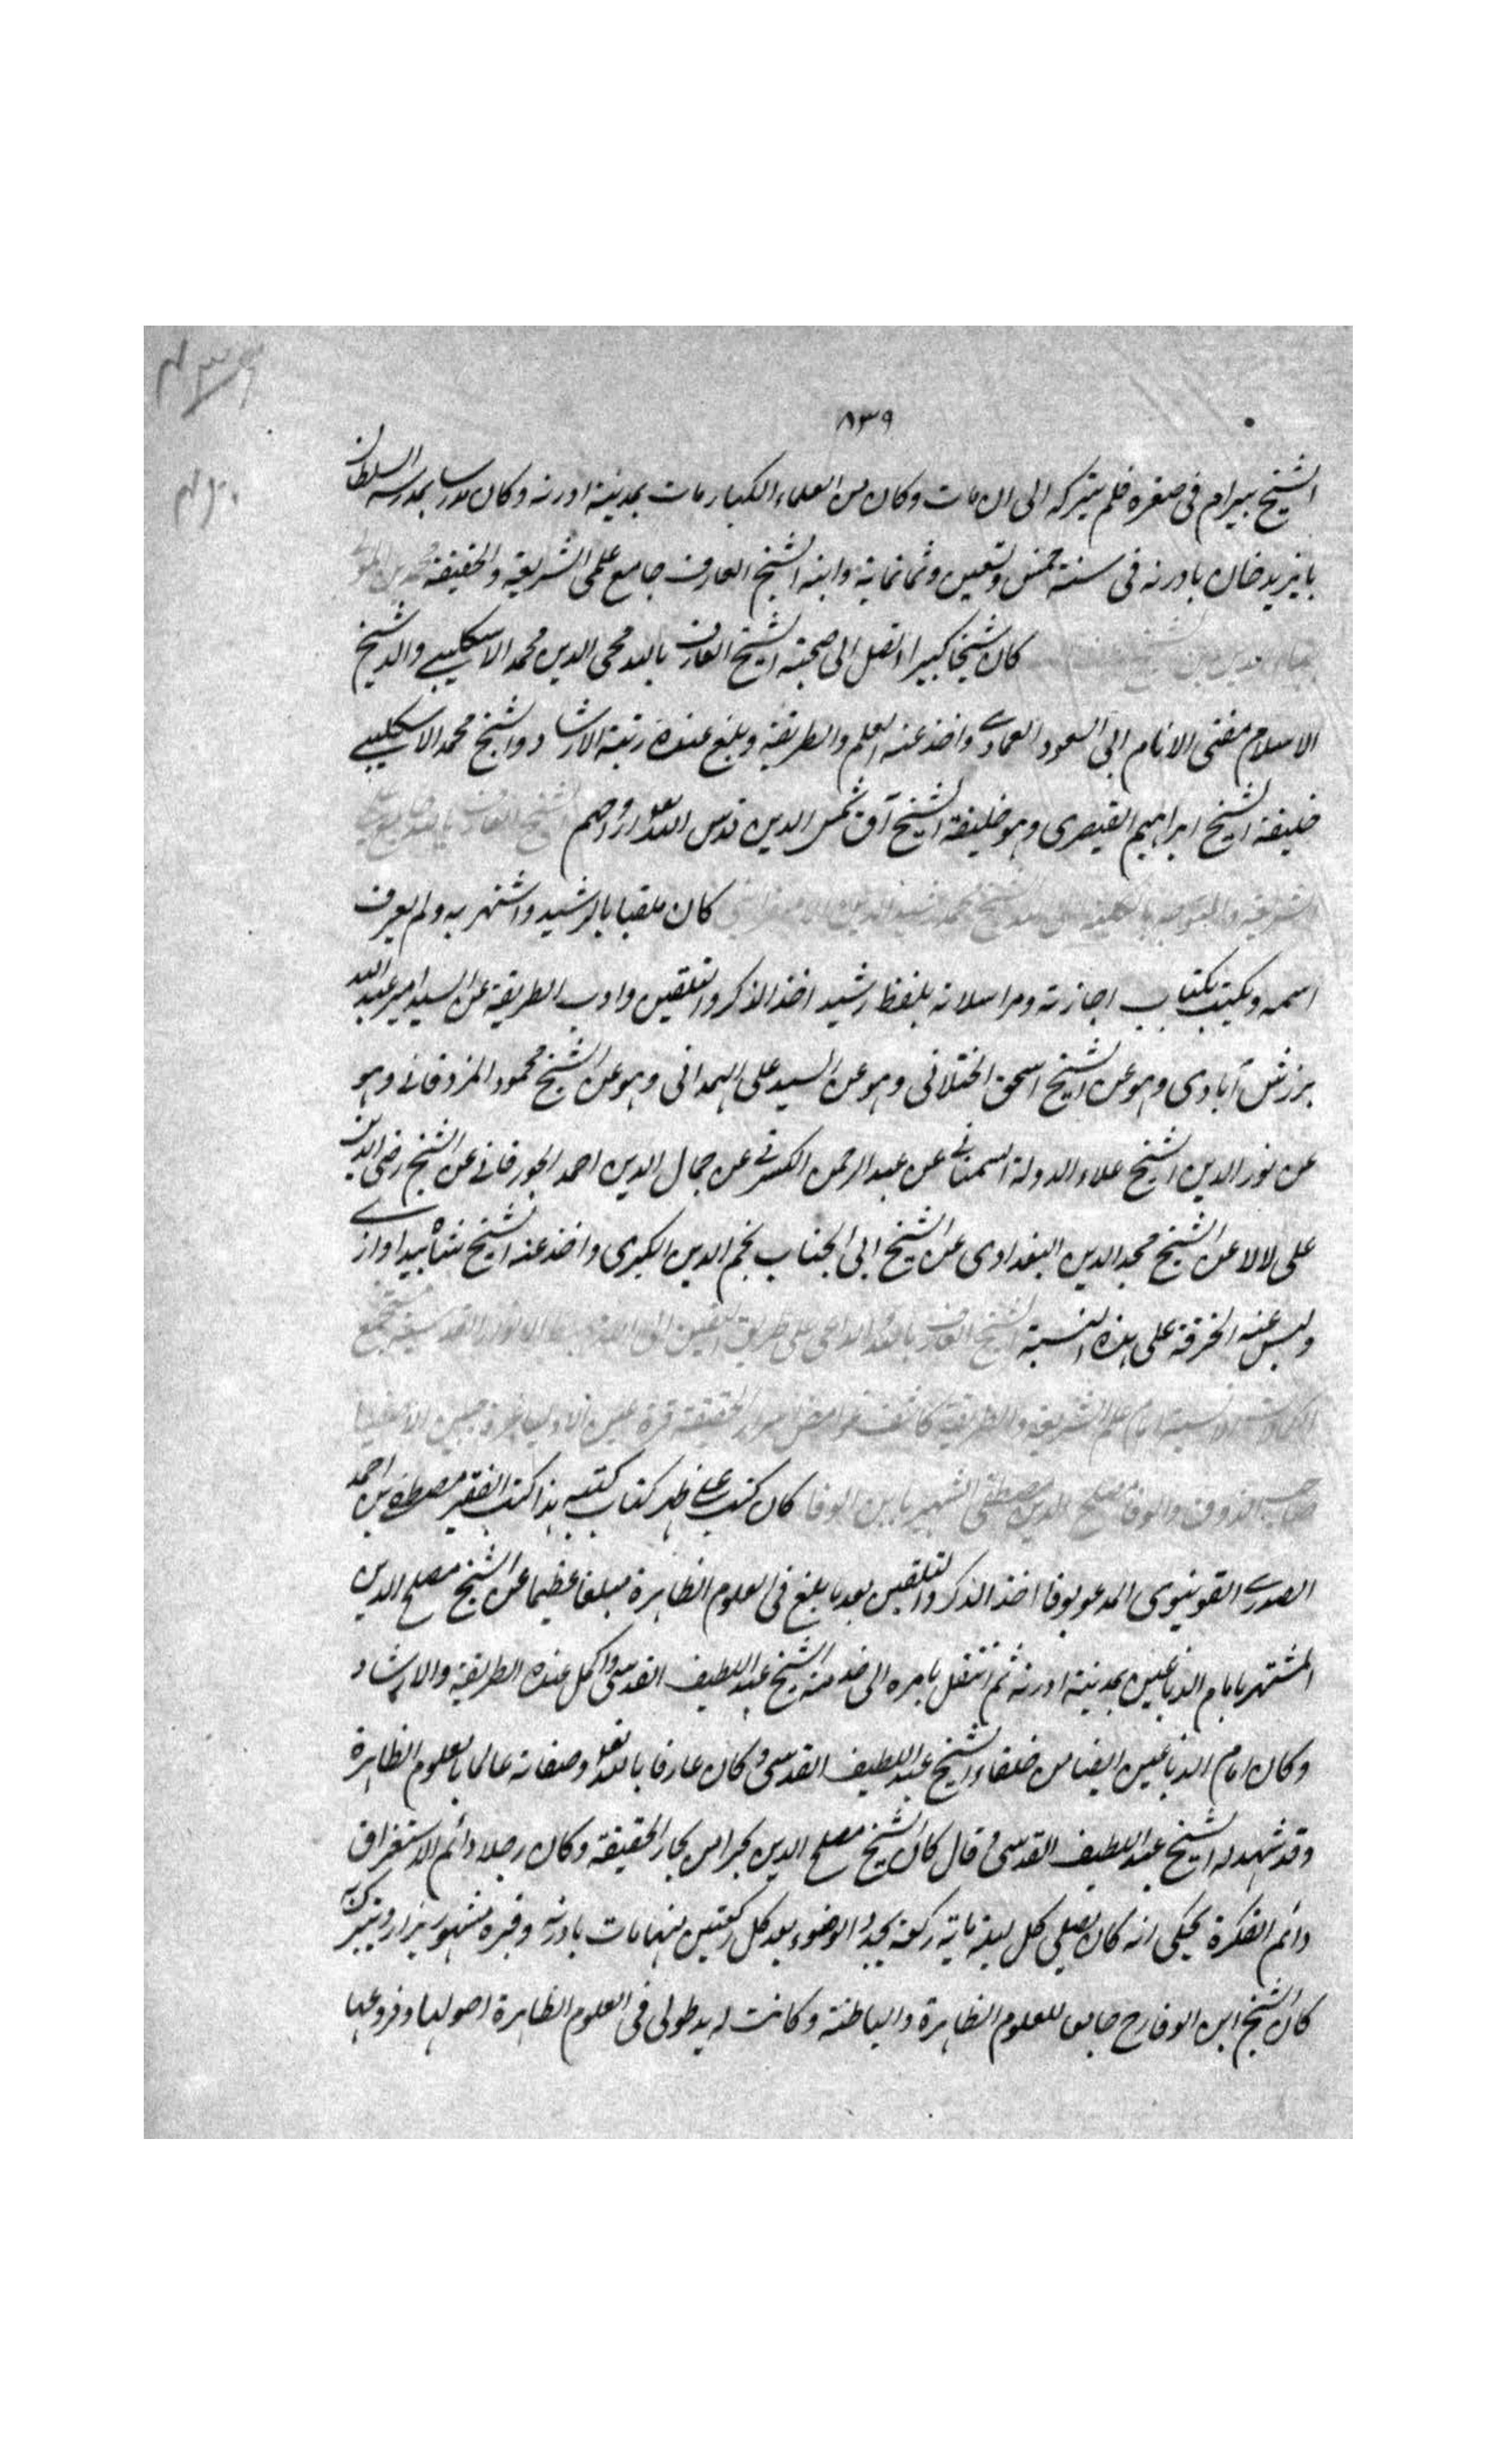 ٨٣٩
الشيخ بيرام فى صغره فلم يتركه الى ان مات وكان من العلماء الكبار مات بمدينة ادرنه وكان مدرسا بمدرسة السلطان
بايزيد خان بادرنه فى سنة خمس وتسعين وثمانماية وابنه الشيخ العارف جامع علمى الشريعة والحقيقة
كان شيخا كبيرا اتصل الى صحبته الشيخ العارف بالله محيى الدين محمد الاسكليبى والد شيخ
الاسلام مفتى الانام ابى السعود العمادى واخذ عنه العلم والطريقة وبلغ عنده رتبة الارشاد والشيخ محمد الاسكليبى
خليفة الشيخ ابراهيم القيصرى وهو خليفة الشيخ آق شمس الدين قدس الله ارواحهم الشيخ العارف بالله
كان ملقبا بالرشيد واشتهر به ولم يعرف
اسمه ويكتب بكتاب اجازته ومراسلاته بلفظ رشيد اخذ الذكر والتلقين وادب الطريقة عن السيد امير عبد الله
برزش آبادى وهو عن الشيخ اسحق الختلانى وهو عن السيد على الهمدانى وهو عن الشيخ محمود المزدقانى وهو
عن نور الدين الشيخ علاء الدولة السمنانى عن عبد الرحمن الكسرقى عن جمال الدين احمد الجورفانى عن الشيخ رضى الدين
على لالا عن الشيخ مجد الدين البغدادى عن الشيخ ابى الجناب نجم الدين الكبرى واخذ عنه الشيخ شاه بيداوازى
ولبس عنه الخرقة على هذه النسبة الشيخ العارف بالله الداعى على طريق اليقين الى الله
علم الشريعة والطريقة كاشف غوامض اسرار الحقيقة قرة عين الاوليا غرة جبين الاصفيا
صاحب الذوق والوفا مصلح الدين مصطفى الشهير بابن الوفا كان كتب على ظهر كتاب كتبه هذا كتب الفقير مصطفى بن احمد
الصدرى القونيوى المدعو بوفا اخذ الذكر والتلقين بعد ما بلغ فى العلوم الظاهرة مبلغا عظيما عن الشيخ مصلح الدين
المشتهر بامام الدباغين بمدينة ادرنه ثم انتقل بامره الى خدمة الشيخ عبد اللطيف القدسى واكمل عنده الطريقة والارشاد
وكان امام الدباغين ايضا من خلفاء الشيخ عبد اللطيف القدسى وكان عارفا بالله تعالى وصفاته عالما بالعلوم الظاهرة
وقد شهد له الشيخ عبد اللطيف القدسى وقال كان الشيخ مصلح الدين بحرا من بحار الحقيقة وكان رجلا دائم الاستغراق
دائم الفكرة يحكى انه كان يصلى كل ليلة ماية ركعة يجدد الوضوء بعد كل ركعتين منها مات بادرنه وقبره مشهور يزار ويتبرك به
كان الشيخ ابن الوفا رح جامعا للعلوم الظاهرة والباطنة وكانت له يد طولى فى العلوم الظاهرة اصولها وفروعها